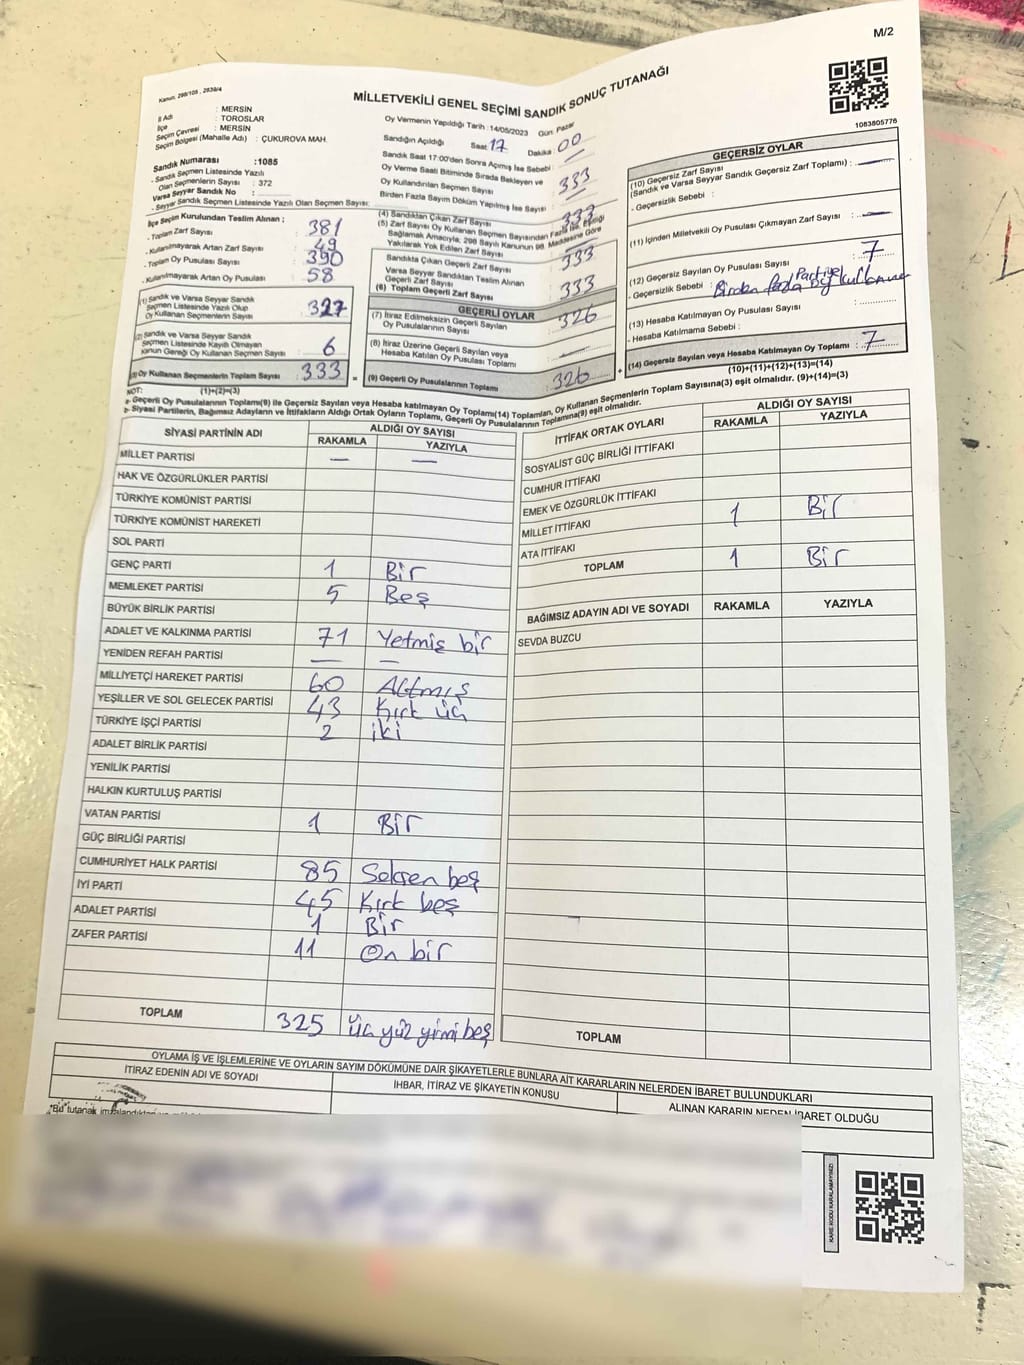 M/2
Kanun: 298/105, 2839/4
MİLLETVEKİLİ GENEL SEÇİMİ SANDIK SONUÇ TUTANAĞI
1083805776
İl Adı : MERSİN
İlçe : TOROSLAR
Seçim Çevresi : MERSİN
Seçim Bölgesi (Mahalle Adı) : ÇUKUROVA MAH.
Sandık Numarası :1085
- Sandık Seçmen Listesinde Yazılı Olan Seçmenlerin Sayısı : 372
Varsa Seyyar Sandık No :
- Seyyar Sandık Seçmen Listesinde Yazılı Olan Seçmen Sayısı:
İlçe Seçim Kurulundan Teslim Alınan ;
- Toplam Zarf Sayısı : 381
- Kullanılmayarak Artan Zarf Sayısı : 49
- Toplam Oy Pusulası Sayısı : 390
- Kullanılmayarak Artan Oy Pusulası : 58
(1) Sandık ve Varsa Seyyar Sandık Seçmen Listesinde Yazılı Olup Oy Kullanan Seçmenlerin Sayısı : 327
(2) Sandık ve Varsa Seyyar Sandık Seçmen Listesinde Kayıtlı Olmayan Kanun Gereği Oy Kullanan Seçmen Sayısı : 6
(3) Oy Kullanan Seçmenlerin Toplam Sayısı : 333
(1)+(2)=(3)
Oy Vermenin Yapıldığı Tarih :14/05/2023 Gün: Pazar
Sandığın Açıldığı Saat 17 Dakika : 00
Sandık Saat 17:00'den Sonra Açımış İse Sebebi :
Oy Verme Saati Bitiminde Sırada Bekleyen ve Oy Kullandırılan Seçmen Sayısı : 333
Birden Fazla Sayım Döküm Yapılmış İse Sayısı :
(4) Sandıktan Çıkan Zarf Sayısı : 333
(5) Zarf Sayısı Oy Kullanan Seçmen Sayısından Fazla İse, Eşitliği Sağlamak Amacıyla, 298 Sayılı Kanunun 98. Maddesine Göre Yakılarak Yok Edilen Zarf Sayısı :
Sandıkta Çıkan Geçerli Zarf Sayısı : 333
Varsa Seyyar Sandıktan Teslim Alınan Geçerli Zarf Sayısı :
(6) Toplam Geçerli Zarf Sayısı : 333
GEÇERLİ OYLAR
(7) İtiraz Edilmeksizin Geçerli Sayılan Oy Pusulalarının Sayısı : 326
(8) İtiraz Üzerine Geçerli Sayılan veya Hesaba Katılan Oy Pusulası Toplamı :
(9) Geçerli Oy Pusulalarının Toplamı : 326
GEÇERSİZ OYLAR
(10) Geçersiz Zarf Sayısı
(Sandık ve Varsa Seyyar Sandık Geçersiz Zarf Toplamı) :
- Geçersizlik Sebebi :
(11) İçinden Milletvekili Oy Pusulası Çıkmayan Zarf Sayısı :
(12) Geçersiz Sayılan Oy Pusulası Sayısı : 7
- Geçersizlik Sebebi : Birden fazla Partiye oy kullanma
(13) Hesaba Katılmayan Oy Pusulası Sayısı :
- Hesaba Katılmama Sebebi :
(14) Geçersiz Sayılan veya Hesaba Katılmayan Oy Toplamı : 7
(10)+(11)+(12)+(13)=(14)
NOT:
- Geçerli Oy Pusulalarının Toplamı(9) ile Geçersiz Sayılan veya Hesaba katılmayan Oy Toplamı(14) Toplamları, Oy Kullanan Seçmenlerin Toplam Sayısına(3) eşit olmalıdır. (9)+(14)=(3)
- Siyasi Partilerin, Bağımsız Adayların ve İttifakların Aldığı Ortak Oyların Toplamı, Geçerli Oy Pusulalarının Toplamına(9) eşit olmalıdır.
SİYASİ PARTİNİN ADI ALDIĞI OY SAYISI
RAKAMLA YAZIYLA
MİLLET PARTİSİ — —
HAK VE ÖZGÜRLÜKLER PARTİSİ
TÜRKİYE KOMÜNİST PARTİSİ
TÜRKİYE KOMÜNİST HAREKETİ
SOL PARTİ
GENÇ PARTİ 1 Bir
MEMLEKET PARTİSİ 5 Beş
BÜYÜK BİRLİK PARTİSİ
ADALET VE KALKINMA PARTİSİ 71 Yetmiş bir
YENİDEN REFAH PARTİSİ — —
MİLLİYETÇİ HAREKET PARTİSİ 60 Altmış
YEŞİLLER VE SOL GELECEK PARTİSİ 43 Kırk üç
TÜRKİYE İŞÇİ PARTİSİ 2 iki
ADALET BİRLİK PARTİSİ
YENİLİK PARTİSİ
HALKIN KURTULUŞ PARTİSİ
VATAN PARTİSİ 1 Bir
GÜÇ BİRLİĞİ PARTİSİ
CUMHURİYET HALK PARTİSİ 85 Seksen beş
İYİ PARTİ 45 Kırk beş
ADALET PARTİSİ 1 Bir
ZAFER PARTİSİ 11 On bir
TOPLAM 325 üç yüz yirmi beş
İTTİFAK ORTAK OYLARI ALDIĞI OY SAYISI
RAKAMLA YAZIYLA
SOSYALİST GÜÇ BİRLİĞİ İTTİFAKI
CUMHUR İTTİFAKI
EMEK VE ÖZGÜRLÜK İTTİFAKI
MİLLET İTTİFAKI 1 Bir
ATA İTTİFAKI
TOPLAM 1 Bir
BAĞIMSIZ ADAYIN ADI VE SOYADI RAKAMLA YAZIYLA
SEVDA BUZCU
TOPLAM
OYLAMA İŞ VE İŞLEMLERİNE VE OYLARIN SAYIM DÖKÜMÜNE DAİR ŞİKAYETLERLE BUNLARA AİT KARARLARIN NELERDEN İBARET BULUNDUKLARI
İTİRAZ EDENİN ADI VE SOYADI İHBAR, İTİRAZ VE ŞİKAYETİN KONUSU ALINAN KARARIN NEDEN İBARET OLDUĞU
"Bu tutanak
KARE KODU KARALAMAYINIZ!